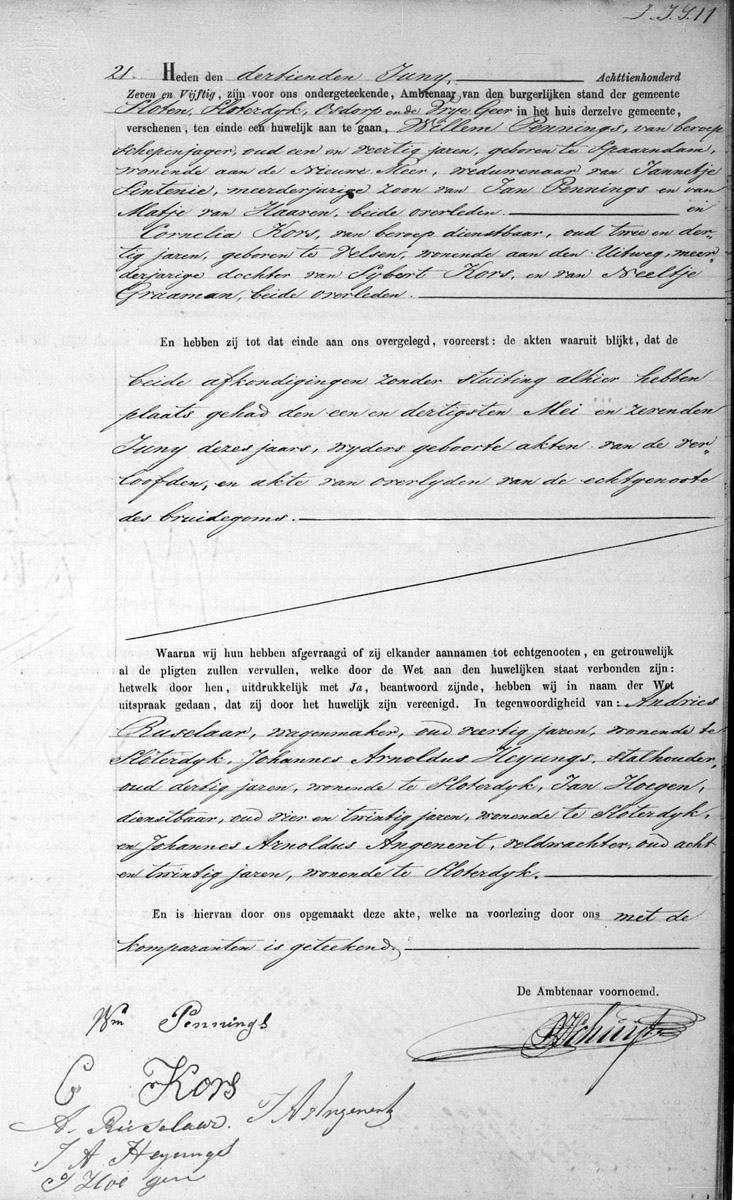 21. Heden den dertienden Juny, Achttienhonderd
Zeven en Vijftig, zijn voor ons ondergeteekende, Ambtenaar van den burgerlijken stand der gemeente
Sloten, Sloterdyk, Osdorp en de Vrye Geer in het huis derzelve gemeente,
verschenen, ten einde een huwelijk aan te gaan, Willem Pennings, van beroep
schepenjager, oud een en veertig jaren, geboren te Spaarndam,
wonende aan de Nieuwe Meer, weduwenaar van Jannetje
Sintenie, meerderjarige zoon van Jan Pennings en van
Matje van Haaren, beide overleden. en
Cornelia Kors, van beroep dienstbaar, oud twee en der„
tig jaren, geboren te Velsen, wonende aan den Uitweg, meer„
derjarige dochter van Sybert Kors, en van Neeltje
Graaman, beide overleden.
En hebben zij tot dat einde aan ons overgelegd, vooreerst: de akten waaruit blijkt, dat de
beide afkondigingen zonder stuiting alhier hebben
plaats gehad den een en dertigsten Mei en zevenden
Juny dezes jaars, wyders geboorte akten van de ver„
loofden, en akte van overlyden van de echtgenoote
des bruidegoms.
Waarna wij hun hebben afgevraagd of zij elkander aannamen tot echtgenooten, en getrouwelijk
al de pligten zullen vervullen, welke door de Wet aan den huwelijken staat verbonden zijn:
hetwelk door hen, uitdrukkelijk met Ja, beantwoord zijnde, hebben wij in naam der Wet
uitspraak gedaan, dat zij door het huwelijk zijn vereenigd. In tegenwoordigheid van: Andries
Ruselaar, wagenmaker, oud veertig jaren, wonende te
Sloterdyk, Johannes Arnoldus Heyungs, stalhouder,
oud dertig jaren, wonende te Sloterdyk, Jan Hoegen,
dienstbaar, oud vier en twintig jaren, wonende te Sloterdyk,
en Johannes Arnoldus Angenent, veldwachter, oud acht
en twintig jaren, wonende te Sloterdyk.
En is hiervan door ons opgemaakt deze akte, welke na voorlezing door ons met de
komparanten is geteekend.
De Ambtenaar voornoemd.
Wm Pennings
C Kors
A. Ruselaar. J A Angenent
J A Heyungs
J Hoegen